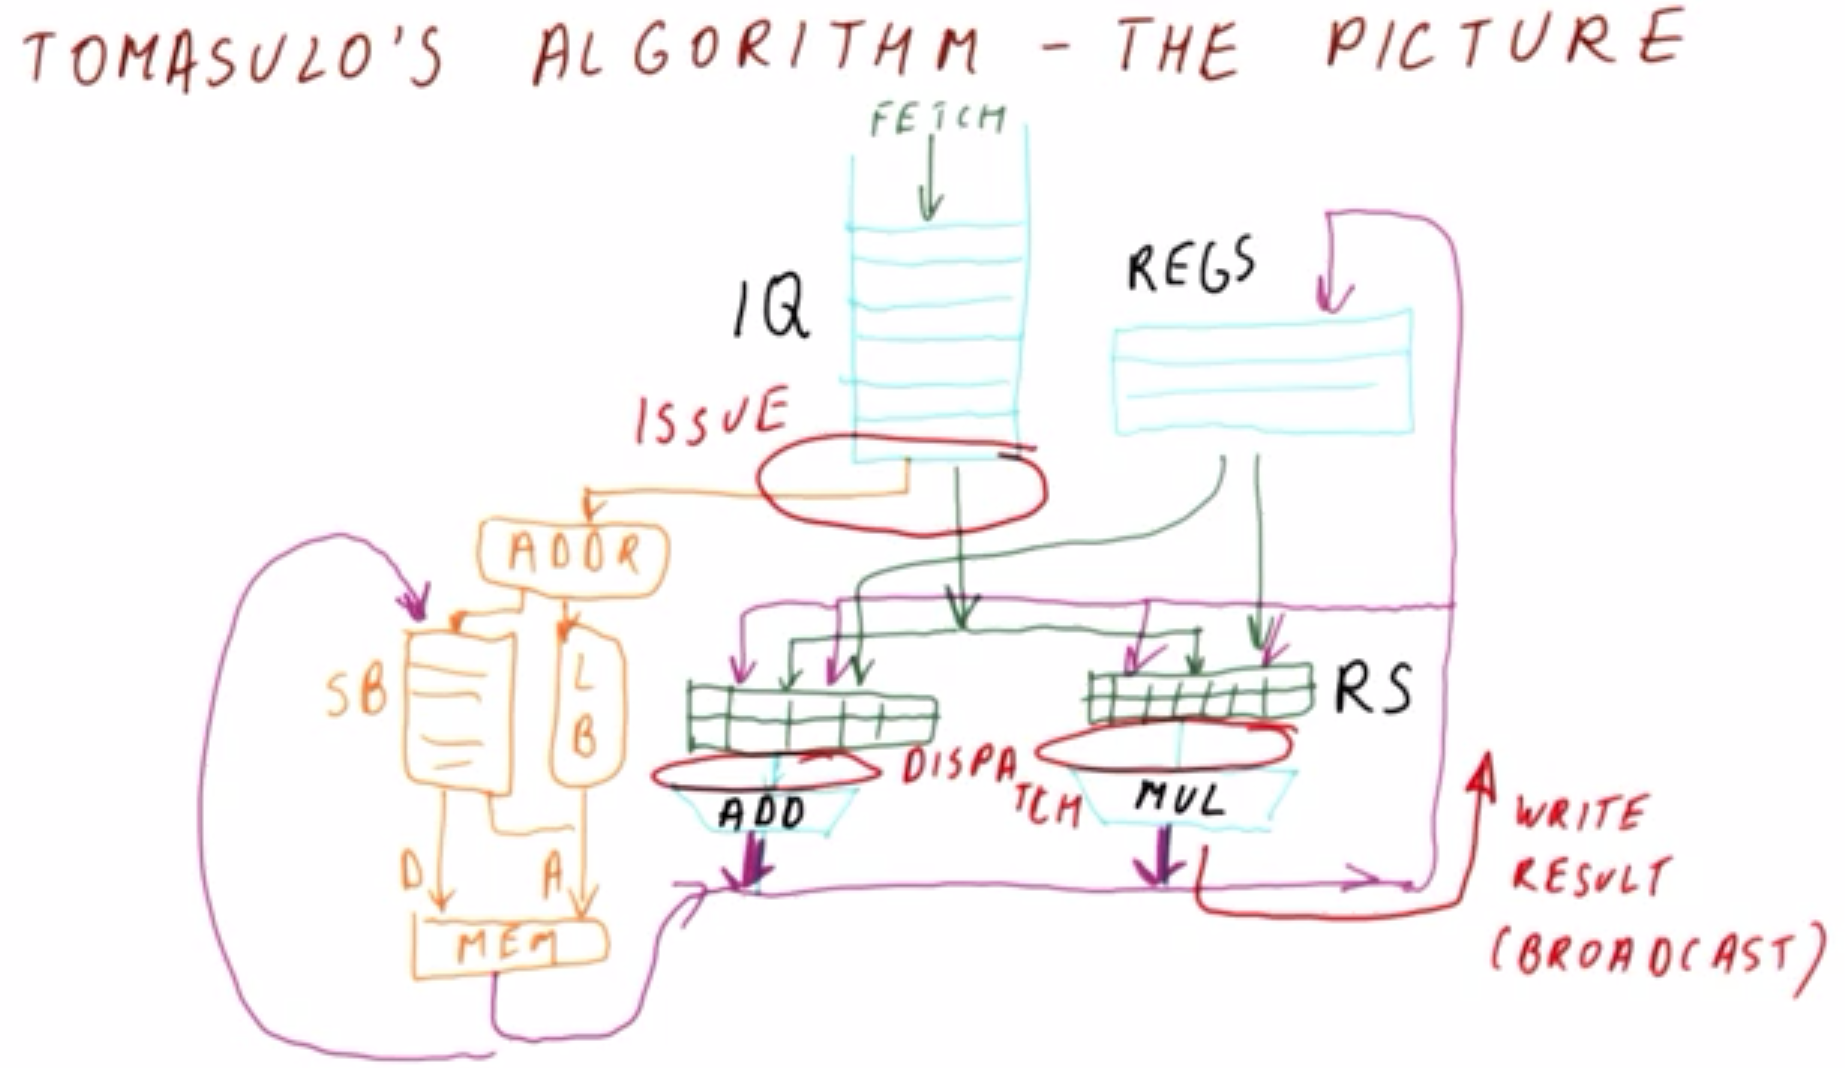 TOMASULO'S ALGORITHM - THE PICTURE
FETCH
IQ
REGS
ISSUE
ADDR
SB
LB
RS
DISPA
TCH
ADD
MUL
D
A
MEM
WRITE
RESULT
(BROADCAST)